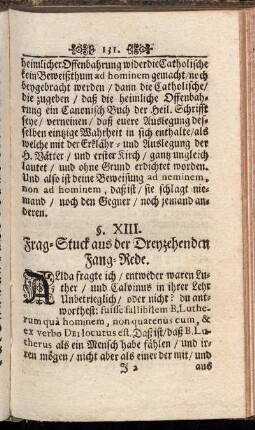 131.
heimlicher Offenbahrung wider die Catholische
kein Beweißthum ad hominem gemacht/ noch
beygebracht werden/ dann die Catholische/
die zugeben/ daß die heimliche Offenbah-
rung ein Canonisch Buch der Heil. Schrifft
seye/ verneinen/ daß euere Auslegung des-
selben eintzige Wahrheit in sich enthalte/ als
welche mit der Erklähr- und Auslegung der
H. Vätter/ und erster Kirch/ gantz ungleich
lautet/ und ohne Grund erdichtet worden.
Und also ist deine Beweisung ad neminem,
non ad hominem, das ist/ sie schlagt nie-
mand/ noch den Gegner/ noch jemand an-
deren.
§. XIII.
Frag-Stuck aus der Dreyzehenden
Fang-Rede.
ALlda fragte ich/ entweder waren Lu-
ther/ und Calvinus in ihrer Lehr
Unbetrieglich/ oder nicht? du ant-
worthest: fuisse fallibilem B. Luthe-
rum quà hominem, non quatenus cum, &
ex verbo DEI locutus est. Das ist/ daß B. Lu-
therus als ein Mensch habe fählen/ und ir-
ren mögen/ nicht aber als einer der mit/ und
J 2 aus